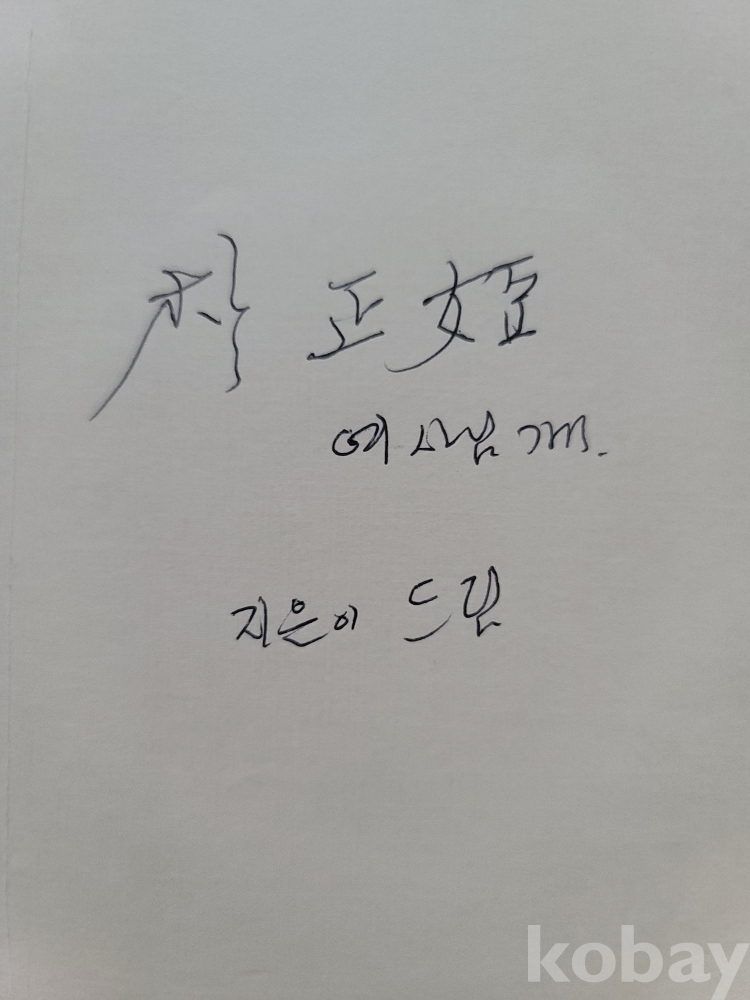 朴 正
여사님께.
지은이 드림
kobay